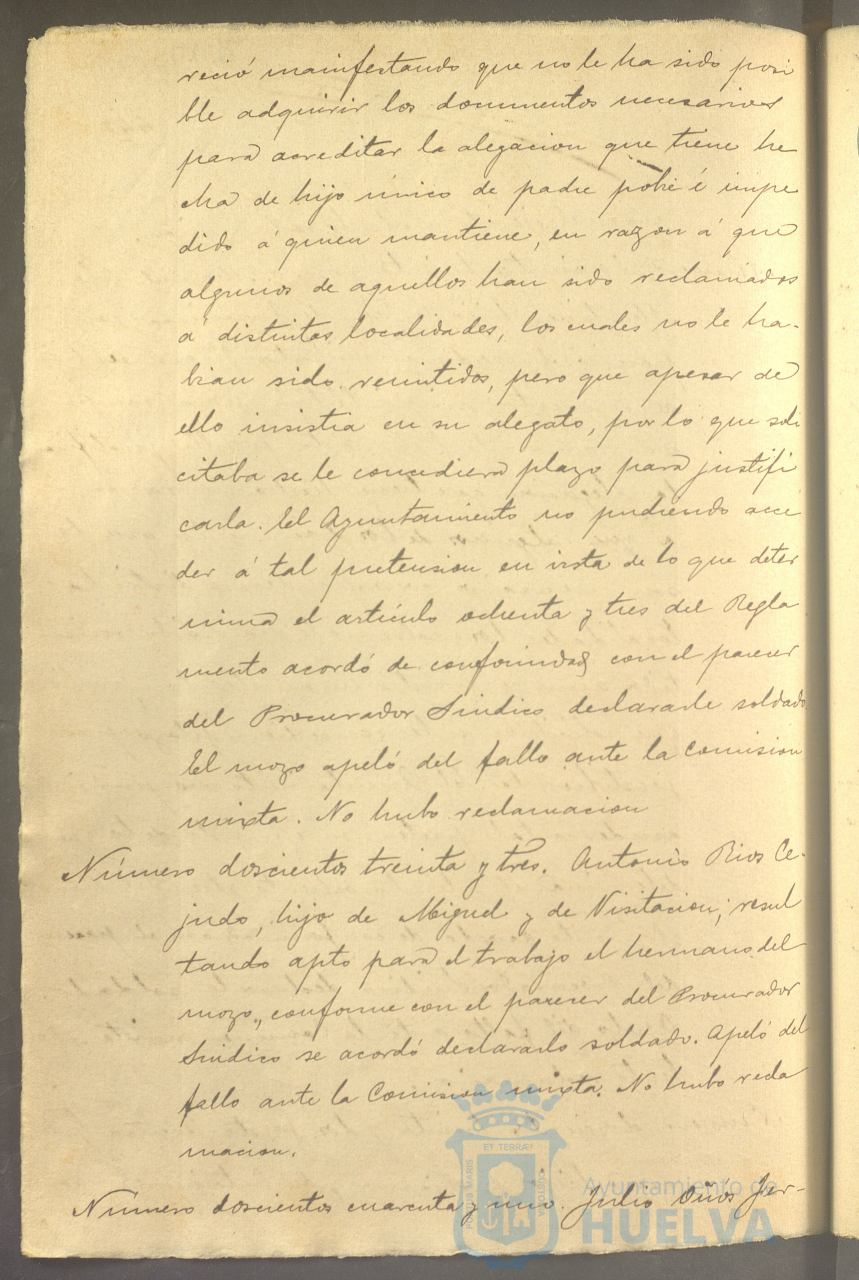 reció manifestando que no le ha sido posi
ble adquirir los documentos necesarios
para acreditar la alegacion que tiene he
cha de hijo único de padre pobre é impe
dido á quien mantiene, en razon á que
algunos de aquellos han sido reclamados
á distintas localidades, los cuales no le ha-
bian sido remitidos, pero que apesar de
ello insistia en su alegato, por lo que soli
citaba se le concediera plazo para justifi
carla. El Ayuntamiento no pudiendo acce
der á tal pretension en vista de lo que deter
mina el artículo ochenta y tres del Regla
mento acordó de conformidad con el parecer
del Procurador Síndico declararle soldado
El mozo apeló del fallo ante la Comision
mixta. No hubo reclamacion
Número doscientos treinta y tres. Antonio Rios Ce-
judo, hijo de Miguel y de Visitacion; resul
tando apto para el trabajo el hermano del
mozo, conforme con el parecer del Procurador
Síndico se acordó declararlo soldado. Apeló del
fallo ante la Comision mixta. No hubo recla
macion.
Número doscientos cuarenta y uno. Julio Oños Jer-
ET TERRAE
PORTUS MARIS
CUSTODIA
Ayuntamiento de
HUELVA